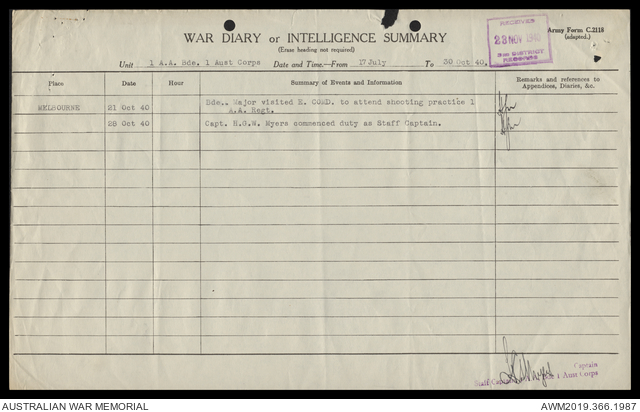 WAR DIARY or INTELLIGENCE SUMMARY
(Erase heading not required)
RECEIVED
28 NOV 1940
3RD DISTRICT RECORDS
Army Form C.2118
(adapted.)
Unit 1 A.A. Bde. 1 Aust Corps Date and Time.—From 17 July To 30 Oct 40.
Place Date Hour Summary of Events and Information Remarks and references to Appendices, Diaries, &c.
MELBOURNE 21 Oct 40 Bde.. Major visited E. COMD. to attend shooting practice 1
A.A. Regt.
28 Oct 40 Capt. H.G.W. Myers commenced duty as Staff Captain.
Captain
Staff Captain 1 Aust Corps
AUSTRALIAN WAR MEMORIAL AWM2019.366.1987